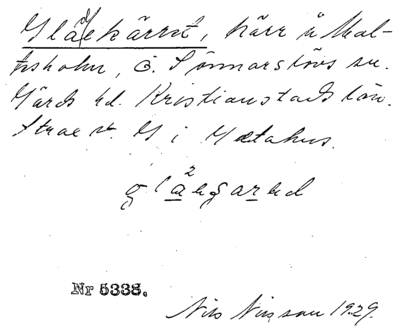 Gladekärret, kärr å Mal-
tesholm, Ö. Sönnarslövs sn.
Gärds hd. Kristianstads län.
Strax v. G i
Nr 5335.
Nils Nilsson 1929.